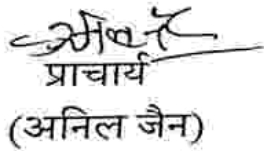 प्राचार्य
(अनिल जैन)